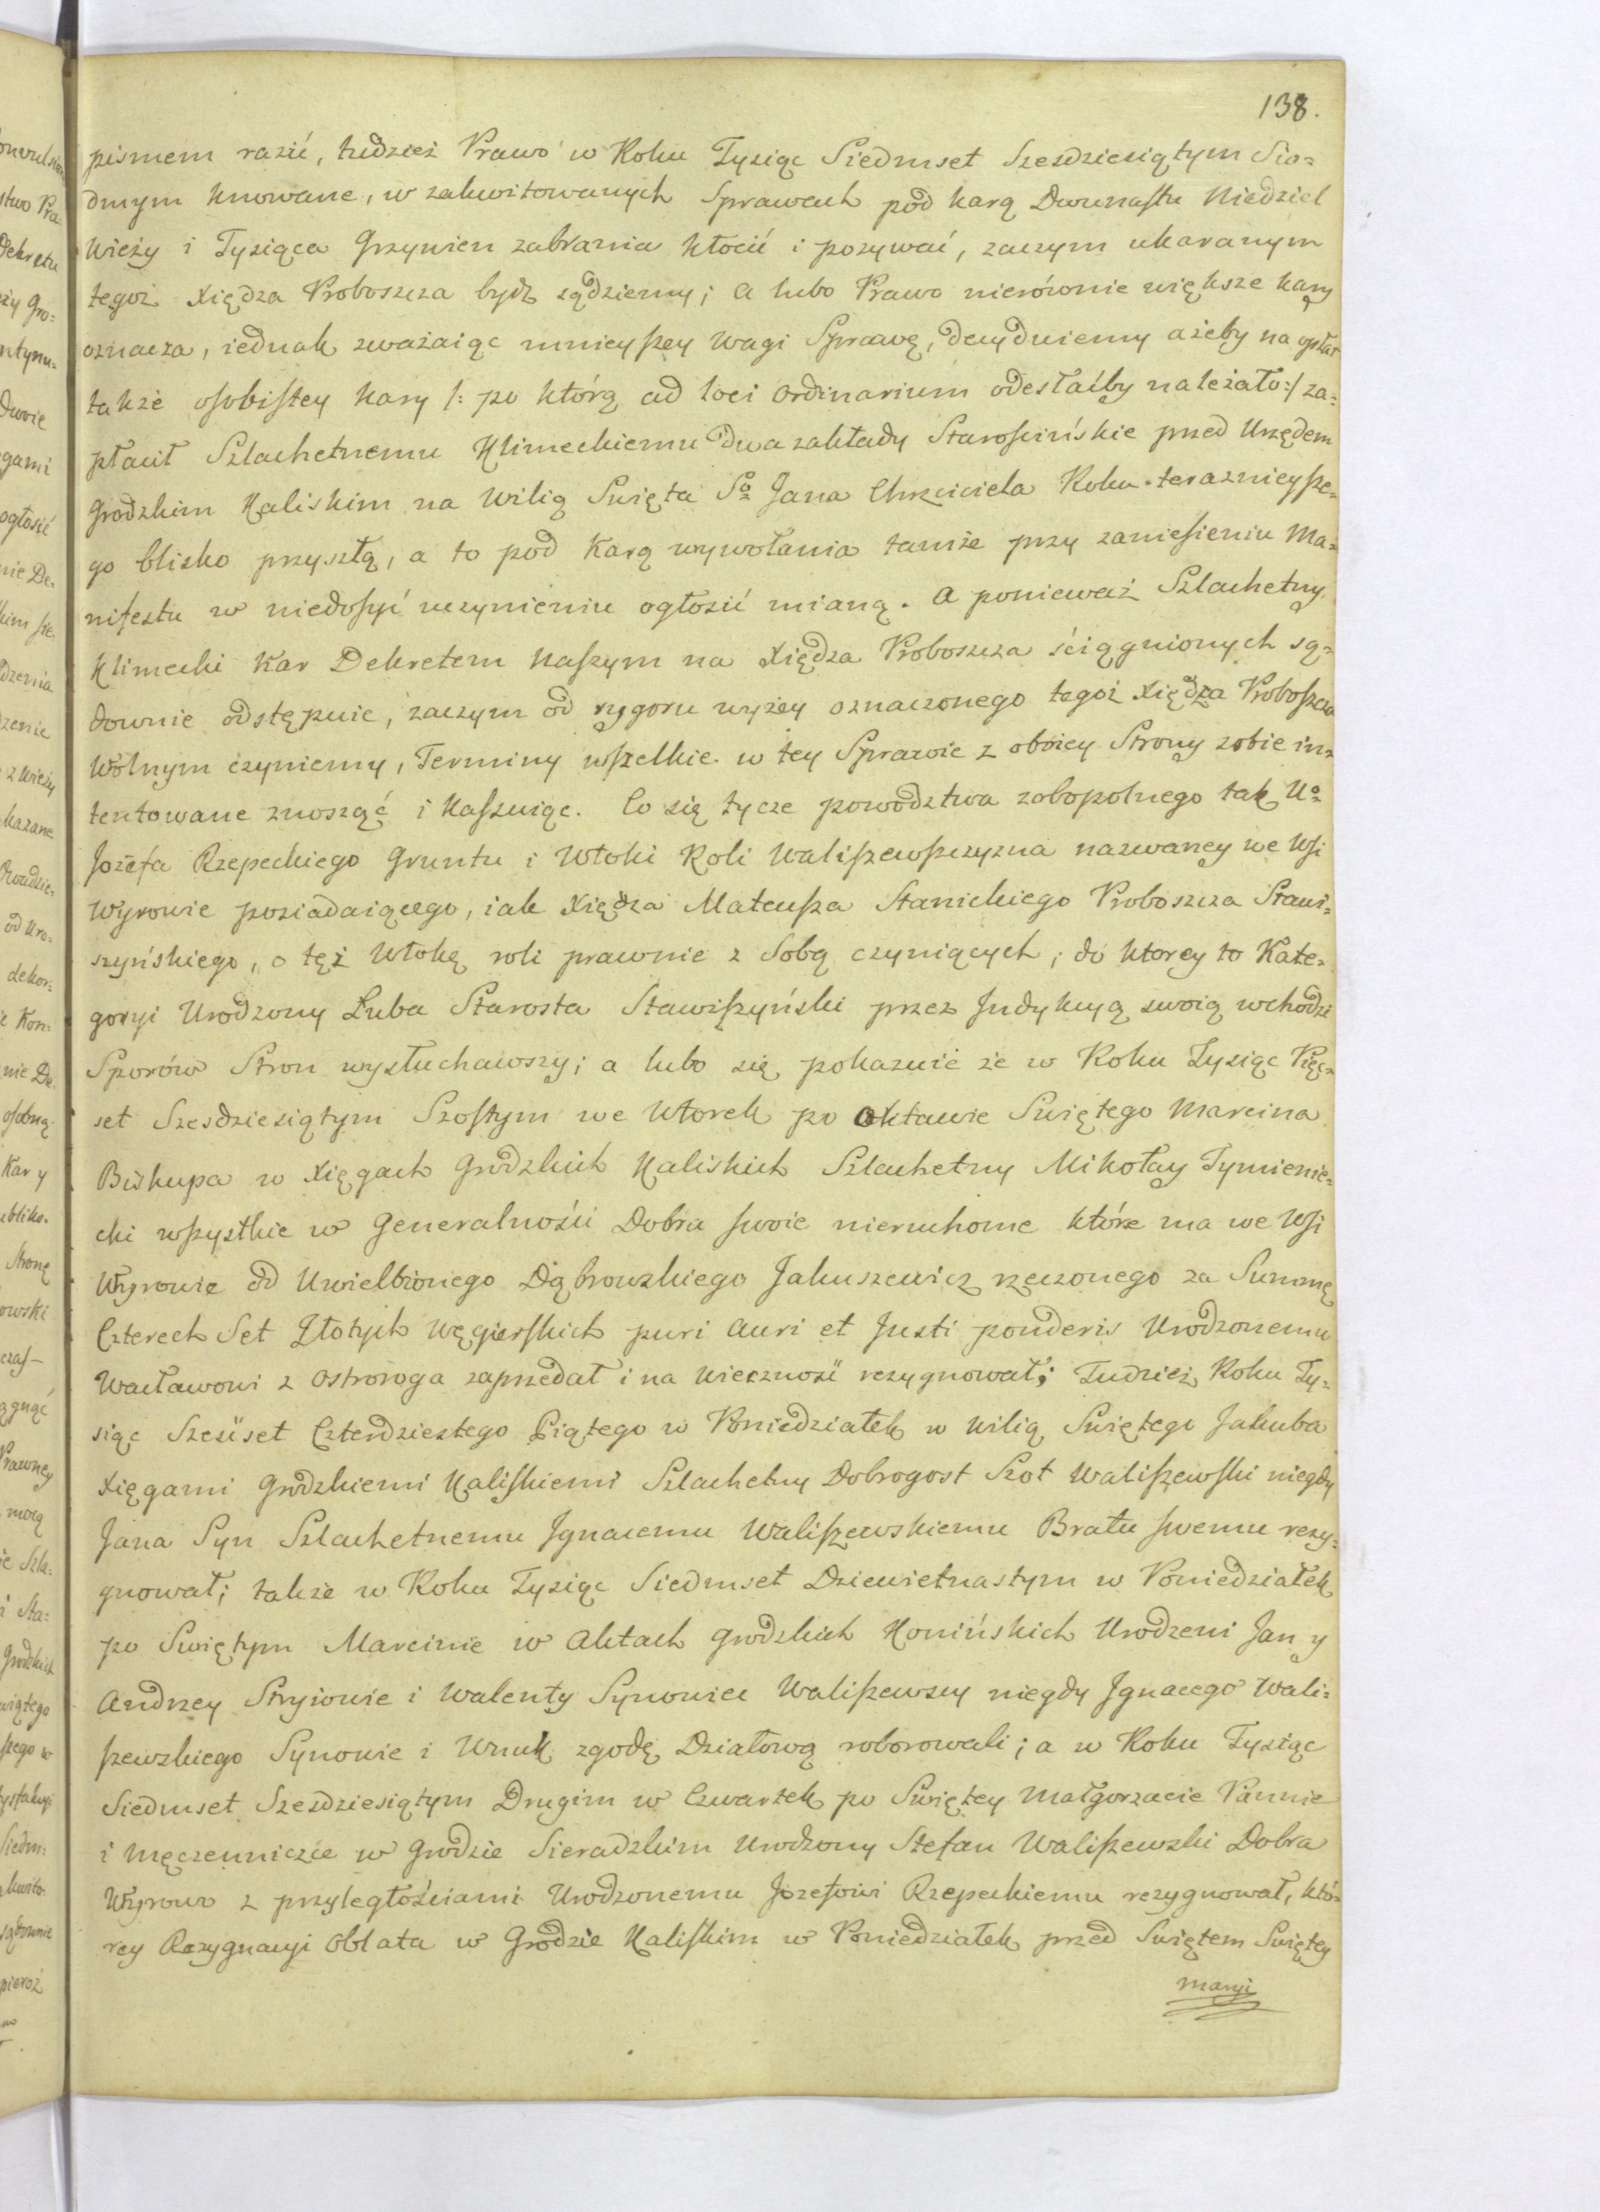 138.
pismem razić, tudzież Prawo w Roku Tysiąc Siedmset Szesdziesiątym Sio=
dmym knowane, w zakwitowanych Sprawach pod karą Dwunastu Niedziel
Wieży i Tysiąca Grzywien zabrania kłocić i pozywać, zaczym ukaranym
tegoż Xiędza Proboszcza bydź sądziemy; a lubo Prawo nierównie większe kary
oznacza, iednak zważaiąc mnieyszey wagi Sprawę, decyduiemy ażeby na
także osobistey kary /: po którą ad loci Ordinarium odesłaćby należało :/ za=
płacił Szlachetnemu Klimeckiemu dwa zakłady Starościńskie przed Urzędem
Grodzkim Kaliskim na Wilią Swięta So Jana Chrzciciela Roku teraznieysze=
go blisko przyszłą, a to pod karą wywołania tamże przy zaniesieniu Ma=
nifestu w niedosyć uczynieniu ogłosić mianą. A ponieważ Szlachetny
Klimecki Kar Dekretem Naszym na Xiędza Proboszcza ściągnionych są=
downie odstępuie, zaczym od rygoru wyżey oznaczonego tegoż Xiędza Proboszcza
Wolnym czyniemy, Terminy wszelkie w tey Sprawie z oboiey Strony sobie in=
tentowane znosząc i Kassuiąc. Co się tycze powództwa zobopolnego tak Uo
Józefa Rzepeckiego Gruntu i Włoki Roli Waliszewszczyzna nazwaney we Wsi
Wyrowie posiadaiącego, iak Xiędza Mateusza Stanickiego Proboszcza Stawi=
szyńskiego, o tęż Włokę roli prawnie z Sobą czyniących; do ktorey to Kate=
goryi Urodzony Łuba Starosta Stawiszyński przez Indykcyą swoią wchodzi
Sporów Stron wysłuchawszy; a lubo się pokazuie że w Roku Tysiąc Pięc=
set Szesdziesiątym Szostym we Wtorek po Oktawie Swiętego Marcina
Biskupa w Xięgach Grodzkich Kaliskich Szlachetny Mikołay Tymienie=
cki wszystkie w Generalności Dobra swoie nieruchome które ma we Wsi
Wyrowie od Uwielbionego Dąbrowskiego Jakuszewicz rzeczonego za Summę
Czterech Set Złotych Węgierskich puri auri et Justi ponderis Urodzonemu
Wacławowi z Ostroroga zaprzedał i na Wieczność rezygnował; Tudzież Roku Ty=
siąc Sześćset Czterdziestego Piątego w Poniedziałek w Wilią Swiętego Jakuba
Xięgami Grodzkiemi Kaliskiemi Szlachetny Dobrogost Szot Waliszewski niegdy
Jana Syn Szlachetnemu Jgnacemu Waliszewskiemu Bratu swemu rezy=
gnował; także w Roku Tysiąc Siedmset Dziewietnastym w Poniedziałek
po Swiętym Marcinie w Aktach Grodzkich Konińskich Urodzeni Jan y
Andrzey Stryiowie i Walenty Synowiec Waliszewscy niegdy Jgnacego Wali=
szewskiego Synowie i Wnuk zgodę Działową roborowali; a w Roku Tysiąc
Siedmset Szesdziesiątym Drugim w Czwartek po Swiętey Małgorzacie Pannie
i Męczenniczce w Grodzie Sieradzkim Urodzony Stefan Waliszewski Dobra
Wyrowo z przyległościami Urodzonemu Jozefowi Rzepeckiemu rezygnował, któ=
rey Rezygnacyi Oblata w Grodzie Kaliskim w Poniedziałek przed Swiętem Swiętey
Maryi